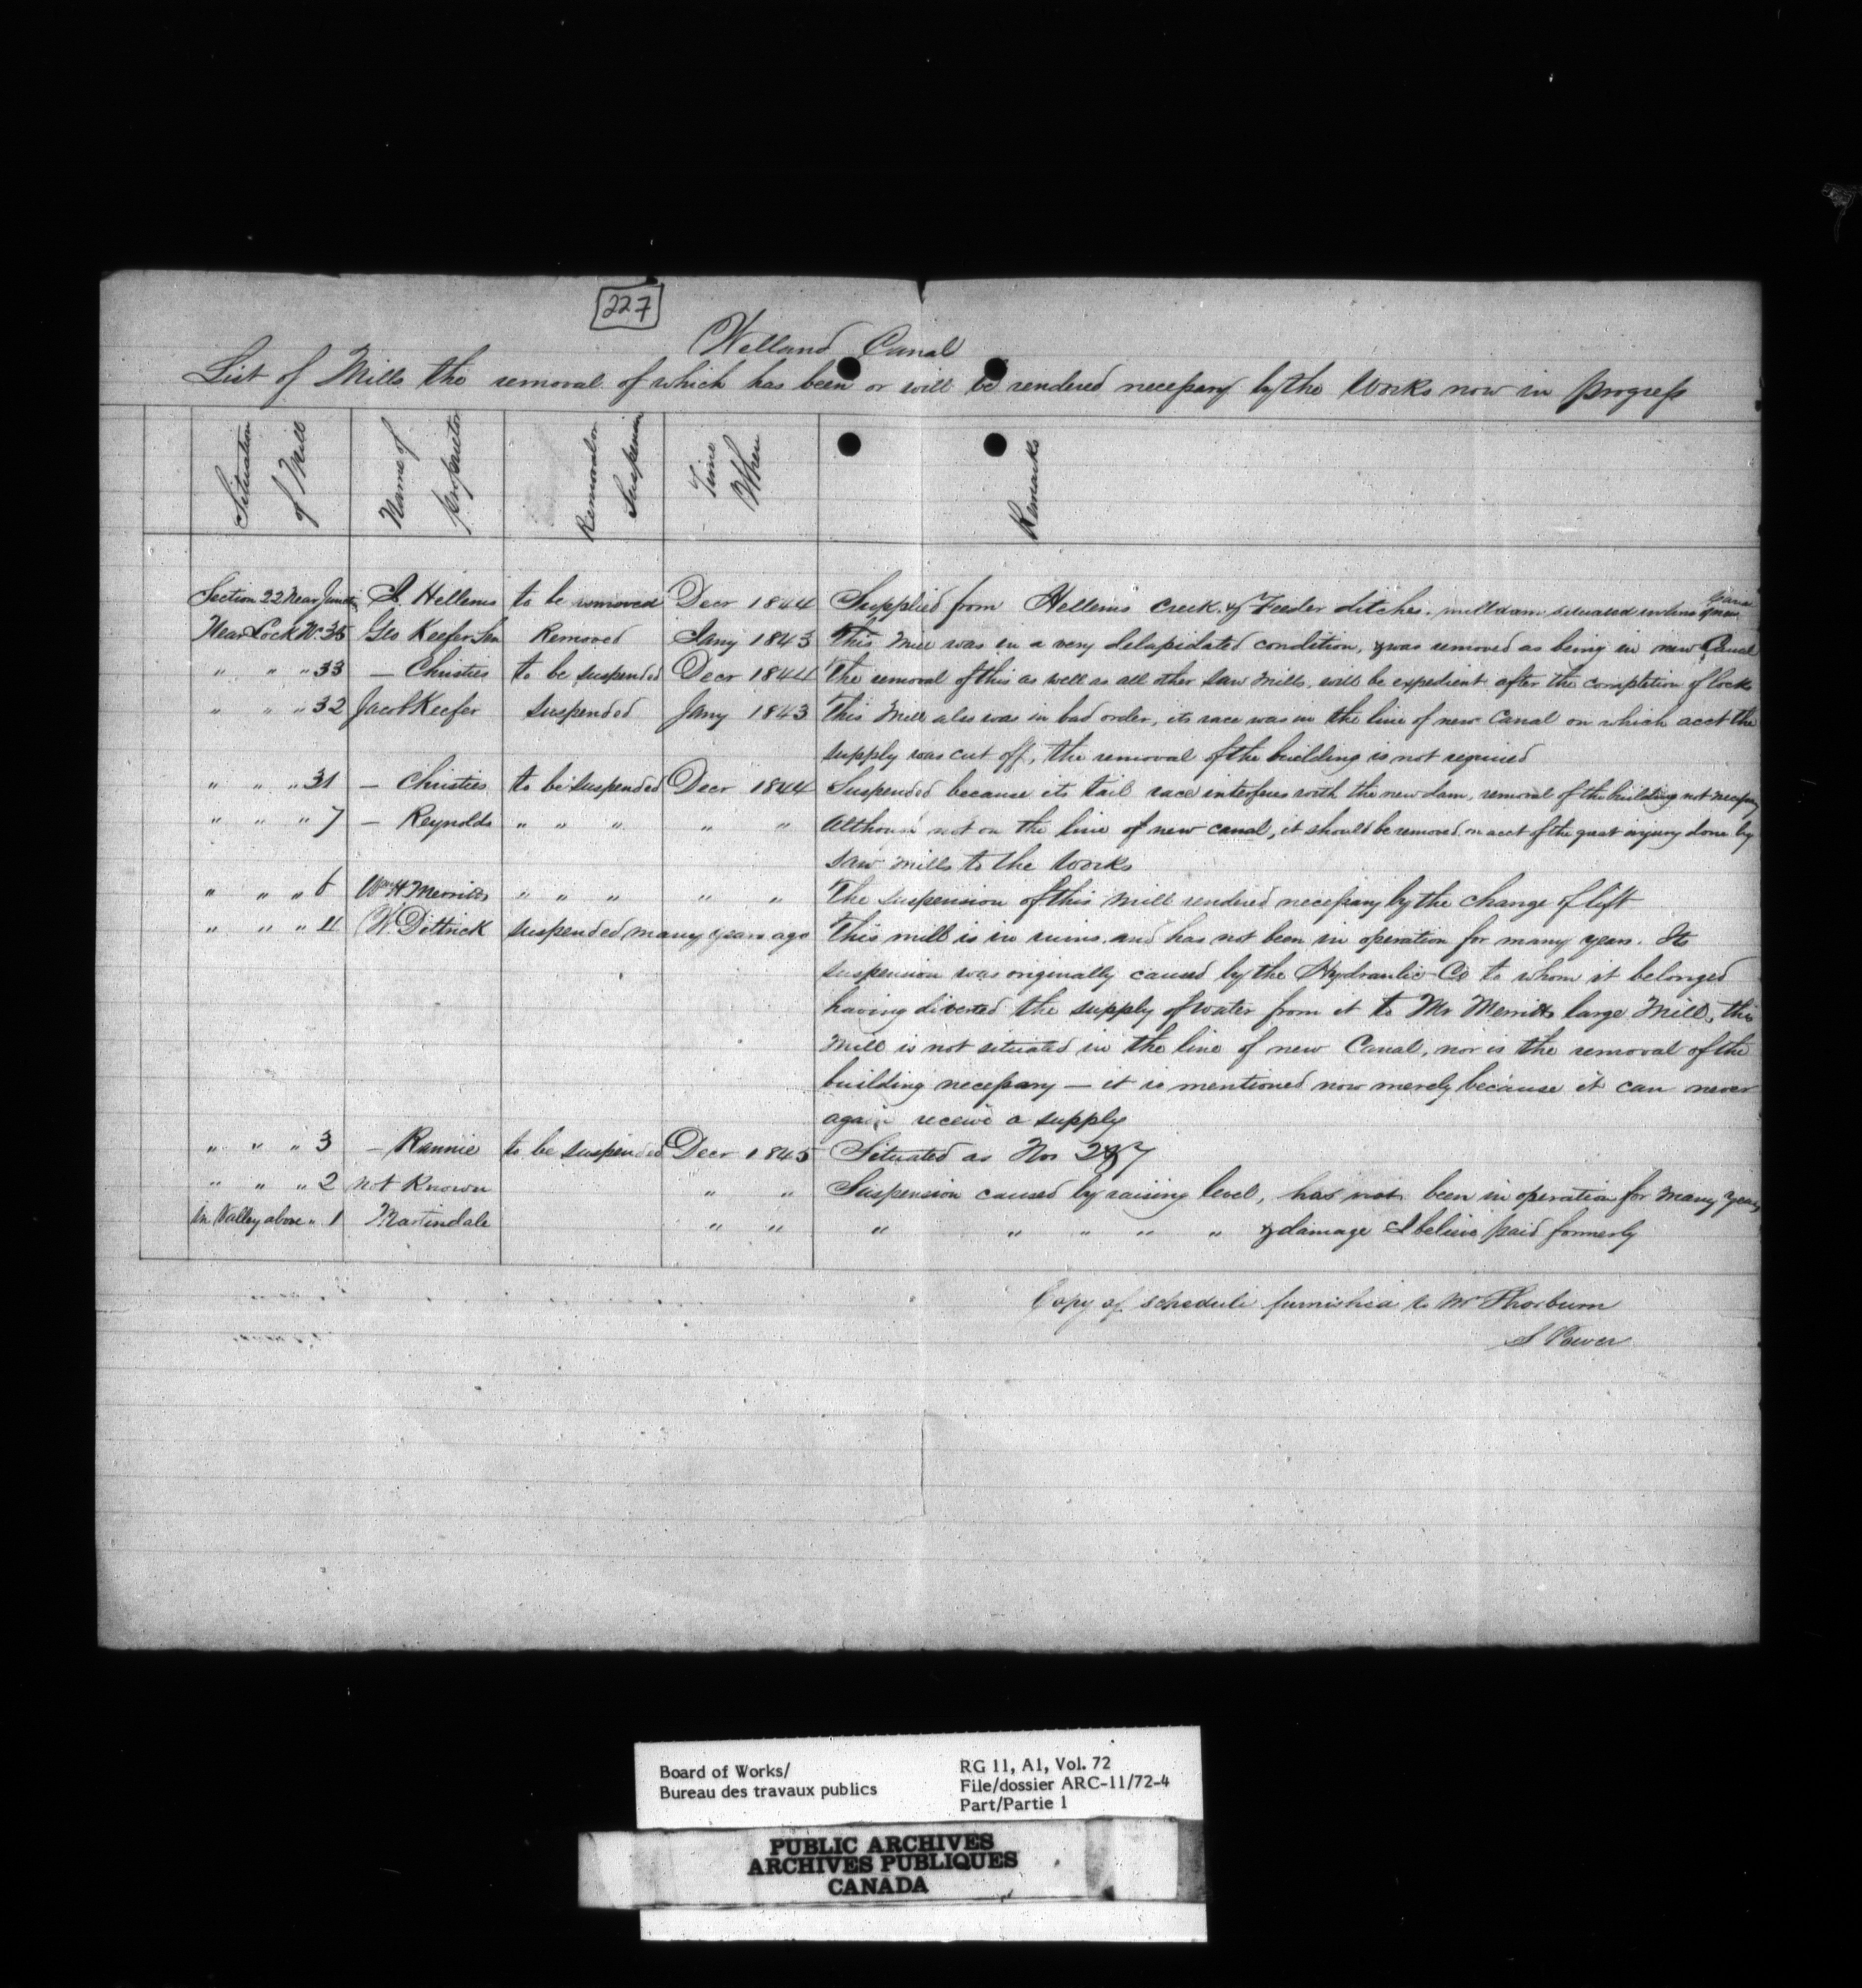 227
Welland Canal
List of Mills the removal of which has been or will be rendered necessary by the Works now in progress
Situation of Mill | Name of proprietor | Removal or Suspension | Time When | Remarks
Section 22 Near Junctn | S. Hellems | to be removed | Decr 1844 | Supplied from Hellems Creek & Feeder ditches, milldam situated in line of new Canal
Near Lock No. 35 | Geo Keefer Sen | Removed | Jany 1843 | This Mill was in a very delapidated condition, & was removed as being in new Canal
" " " 33 | — Christies | to be suspended | Decr 1844 | The removal of this as well as all other Saw Mills, will be expedient after the completion of locks
" " " 32 | Jacob Keefer | Suspended | Jany 1843 | This Mill also was in bad order, its race was in the line of new Canal on which acct the
supply was cut off, the removal of the building is not required
" " " 31 | — Christies | to be suspended | Decr 1844 | Suspended because its tail race interferes with the new dam, removal of the building not necessary
" " " 7 | — Reynolds | " " " | " " | Although not on the line of new canal, it should be removed on acct of the great injury done by
saw mills to the Works
" " " 6 | Wm H Merritts | " " " | " " | The suspension of this Mill rendered necessary by the change of lift
" " " 11 | W. Dittrick | suspended many years ago | This mill is in ruins, and has not been in operation for many years. Its
suspension was originally caused by the Hydraulic Co to whom it belonged
having diverted the supply of water from it to Mr Merritts large Mill, this
Mill is not situated in the line of new Canal, nor is the removal of the
building necessary — it is mentioned now merely because it can never
again receive a supply
" " " 3 | — Rannie | to be suspended | Decr 1845 | Situated as Nos 2 & 7
" " " 2 | not Known | " " | Suspension caused by raising level, has not been in operation for many years
in Valley above " 1 | Martindale | " " | " " " " " & damage I believe paid formerly
Copy of schedule furnished to Mr Thorburn
S Power
Board of Works/
Bureau des travaux publics
RG 11, A1, Vol. 72
File/dossier ARC-11/72-4
Part/Partie 1
PUBLIC ARCHIVES
ARCHIVES PUBLIQUES
CANADA